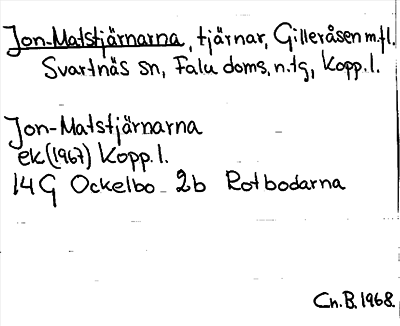 Jon-Matstjärnarna, tjärnar, Gilleråsen m.fl.
Svartnäs sn, Falu doms. n. tg, Kopp. l.
Jon-Matstjärnarna
ek (1967) Kopp. l.
14 G Ockelbo 2b Rotbodarna
Ch. B. 1968.